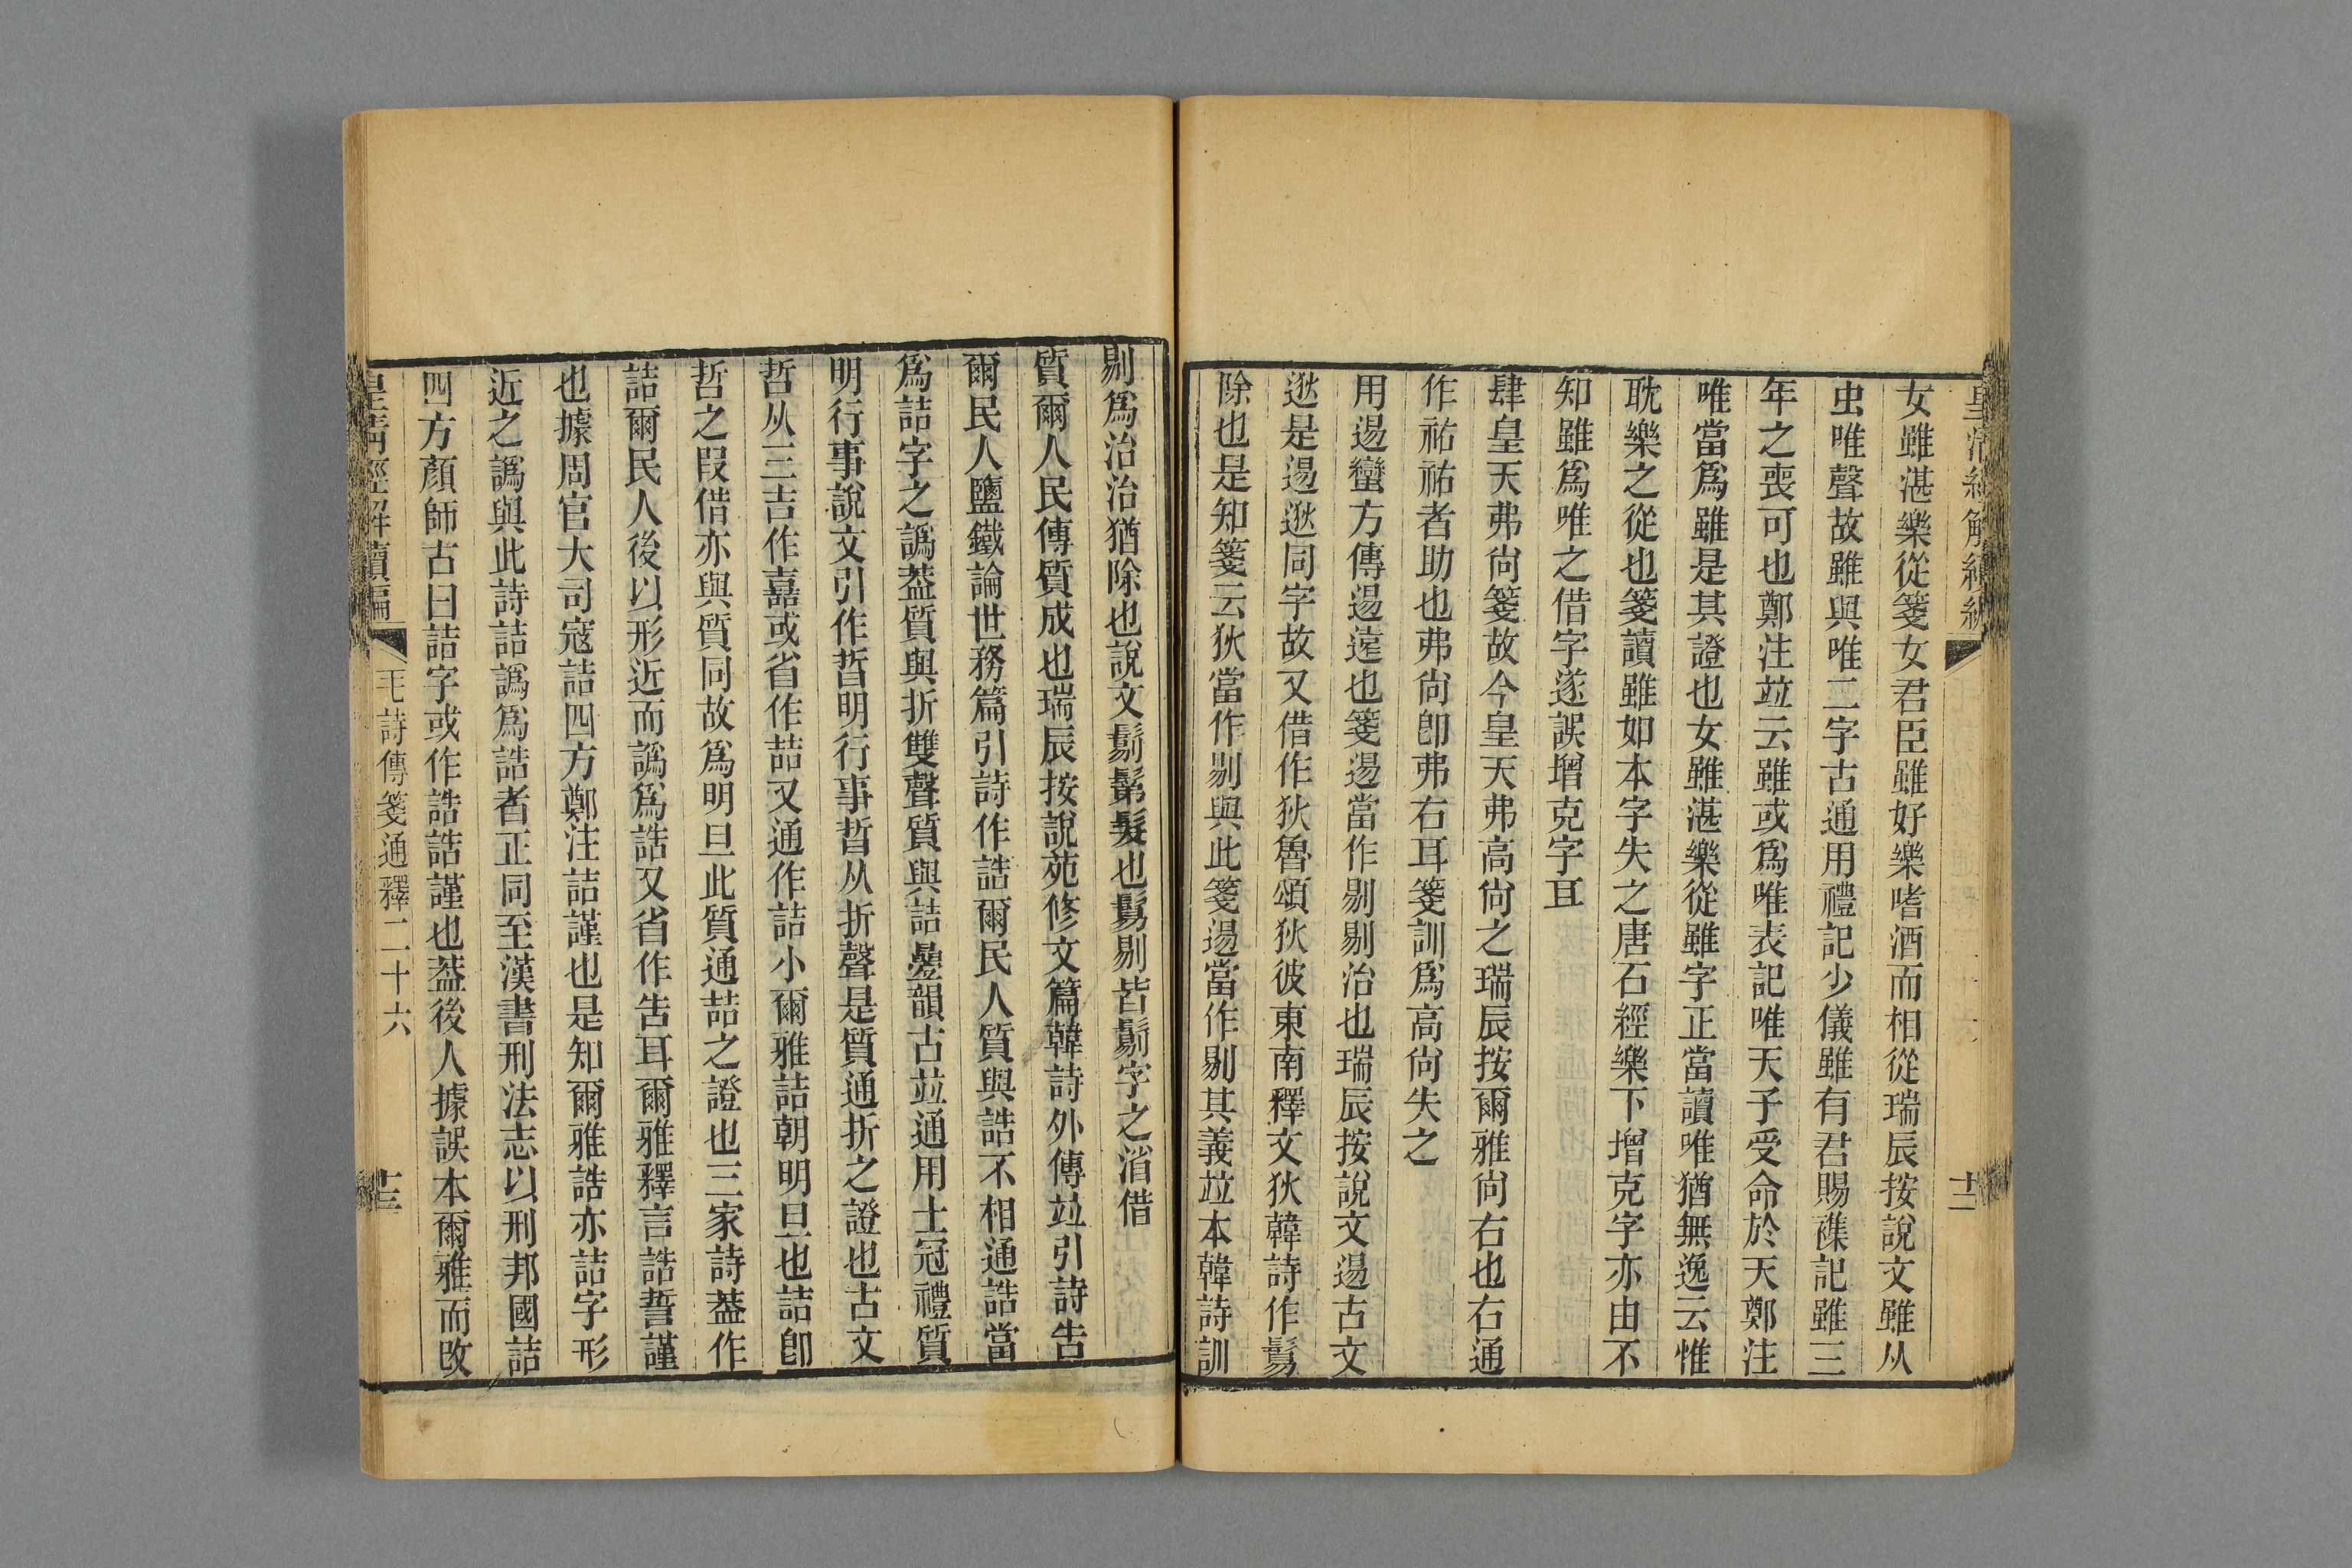 女雖湛樂從箋女君臣雖好樂嗜酒而相從瑞辰按說文雖从
虫唯聲故雖與唯二字古通用禮記少儀雖有君賜襍記雖三
年之喪可也鄭注竝云雖或爲唯表記唯天子受命於天鄭注
唯當爲雖是其證也女雖湛樂從雖字正當讀唯猶無逸云惟
耽樂之從也箋讀雖如本字失之唐石經樂下增克字亦由不
知雖爲唯之借字遂誤增克字耳
肆皇天弗尙箋故今皇天弗高尙之瑞辰按爾雅尙右也右通
作祐祐者助也弗尙卽弗右耳箋訓爲高尙失之
用逷蠻方傳逷遠也箋逷當作剔剔治也瑞辰按說文逷古文
逖是逷逖同字故又借作狄魯頌狄彼東南釋文狄韓詩作鬄
除也是知箋云狄當作剔與此箋逷當作剔其義竝本韓詩訓
剔爲治治猶除也說文鬄鬀髮也鬄剔皆鬄字之消借
質爾人民傳質成也瑞辰按說苑修文篇韓詩外傳竝引詩告
爾民人鹽鐵論世務篇引詩作誥爾民人質與誥不相通誥當
爲詰字之譌葢質與折雙聲質與詰疊韻古竝通用士冠禮質
明行事說文引作晢明行事晢从折聲是質通折之證也古文
哲从三吉作嚞或省作喆又通作詰小爾雅詰朝明旦也詰卽
哲之叚借亦與質同故爲明旦此質通喆之證也三家詩葢作
詰爾民人後以形近而譌爲誥又省作吿耳爾雅釋言誥誓謹
也據周官大司寇詰四方鄭注詰謹也是知爾雅誥亦詰字形
近之譌與此詩詰譌爲誥者正同至漢書刑法志以刑邦國詰
四方顏師古曰詰字或作誥誥謹也葢後人據誤本爾雅而改
皇淸經解續編
毛詩傳箋通釋二十六
十三